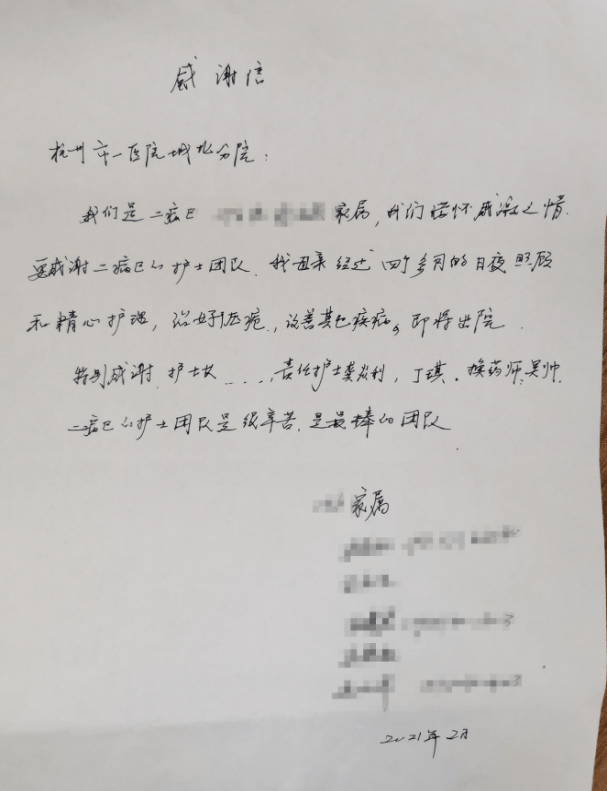 感谢信
杭州市一医院城北分院：
我们是二病区 家属，我们怀感激之情.
要感谢二病区的护士团队. 我母亲经过四个多月的日夜照顾
和精心护理，治好了压疮，改善其它疾病。即将出院.
特别感谢 护士长......，责任护士 利，丁琪，换药师吴帅.
二病区的护士团队是很辛苦. 是最棒的团队
家属
2021年2月